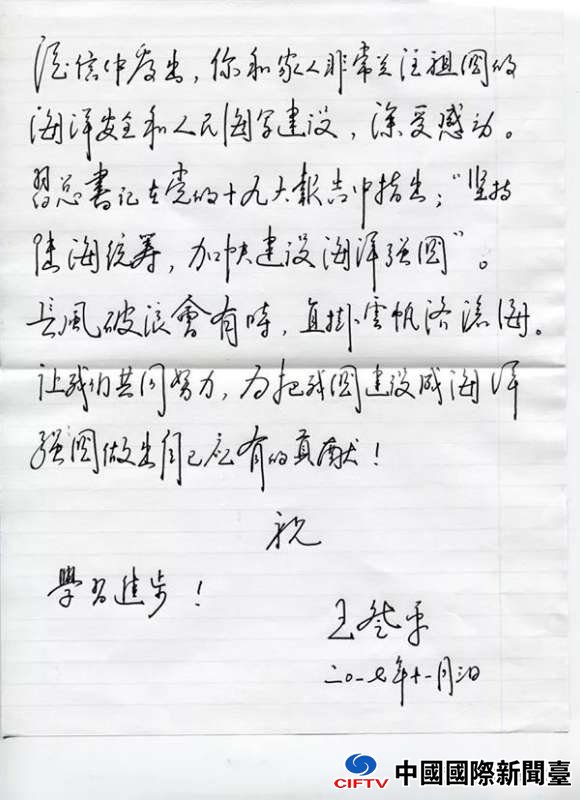 從信中看出，你和家人非常关注祖國的
海洋安全和人民海军建设，深受感动。
習总書记在党的十九大報告中指出："坚持
陆海统筹，加快建设海洋强國"。
長風破浪會有時，直掛雲帆济滄海。
让我们共同努力，为把我國建设成海洋
强國做出自己应有的貢献！
祝
學習進步！
王登平
二〇一七年十一月三日
CIFTV 中國國際新聞臺